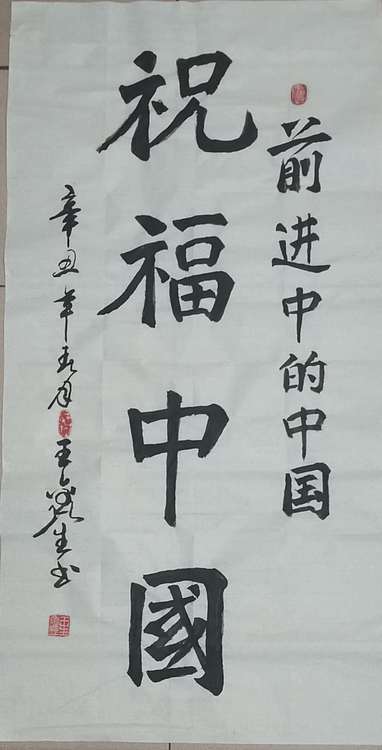 前进中的中国
祝福中國
辛丑年五月王生书